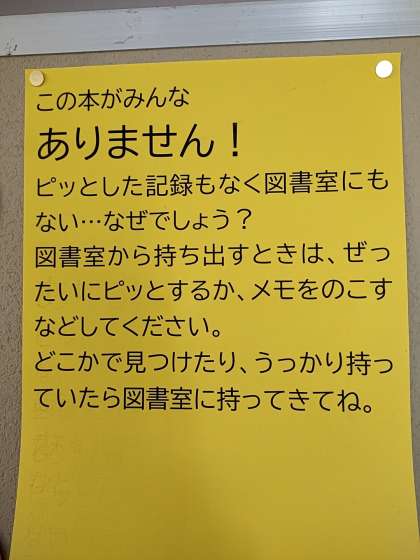 この本がみんな
ありません！
ピッとした記録もなく図書室にも
ない…なぜでしょう？
図書室から持ち出すときは、ぜっ
たいにピッとするか、メモをのこす
などしてください。
どこかで見つけたり、うっかり持っ
ていたら図書室に持ってきてね。